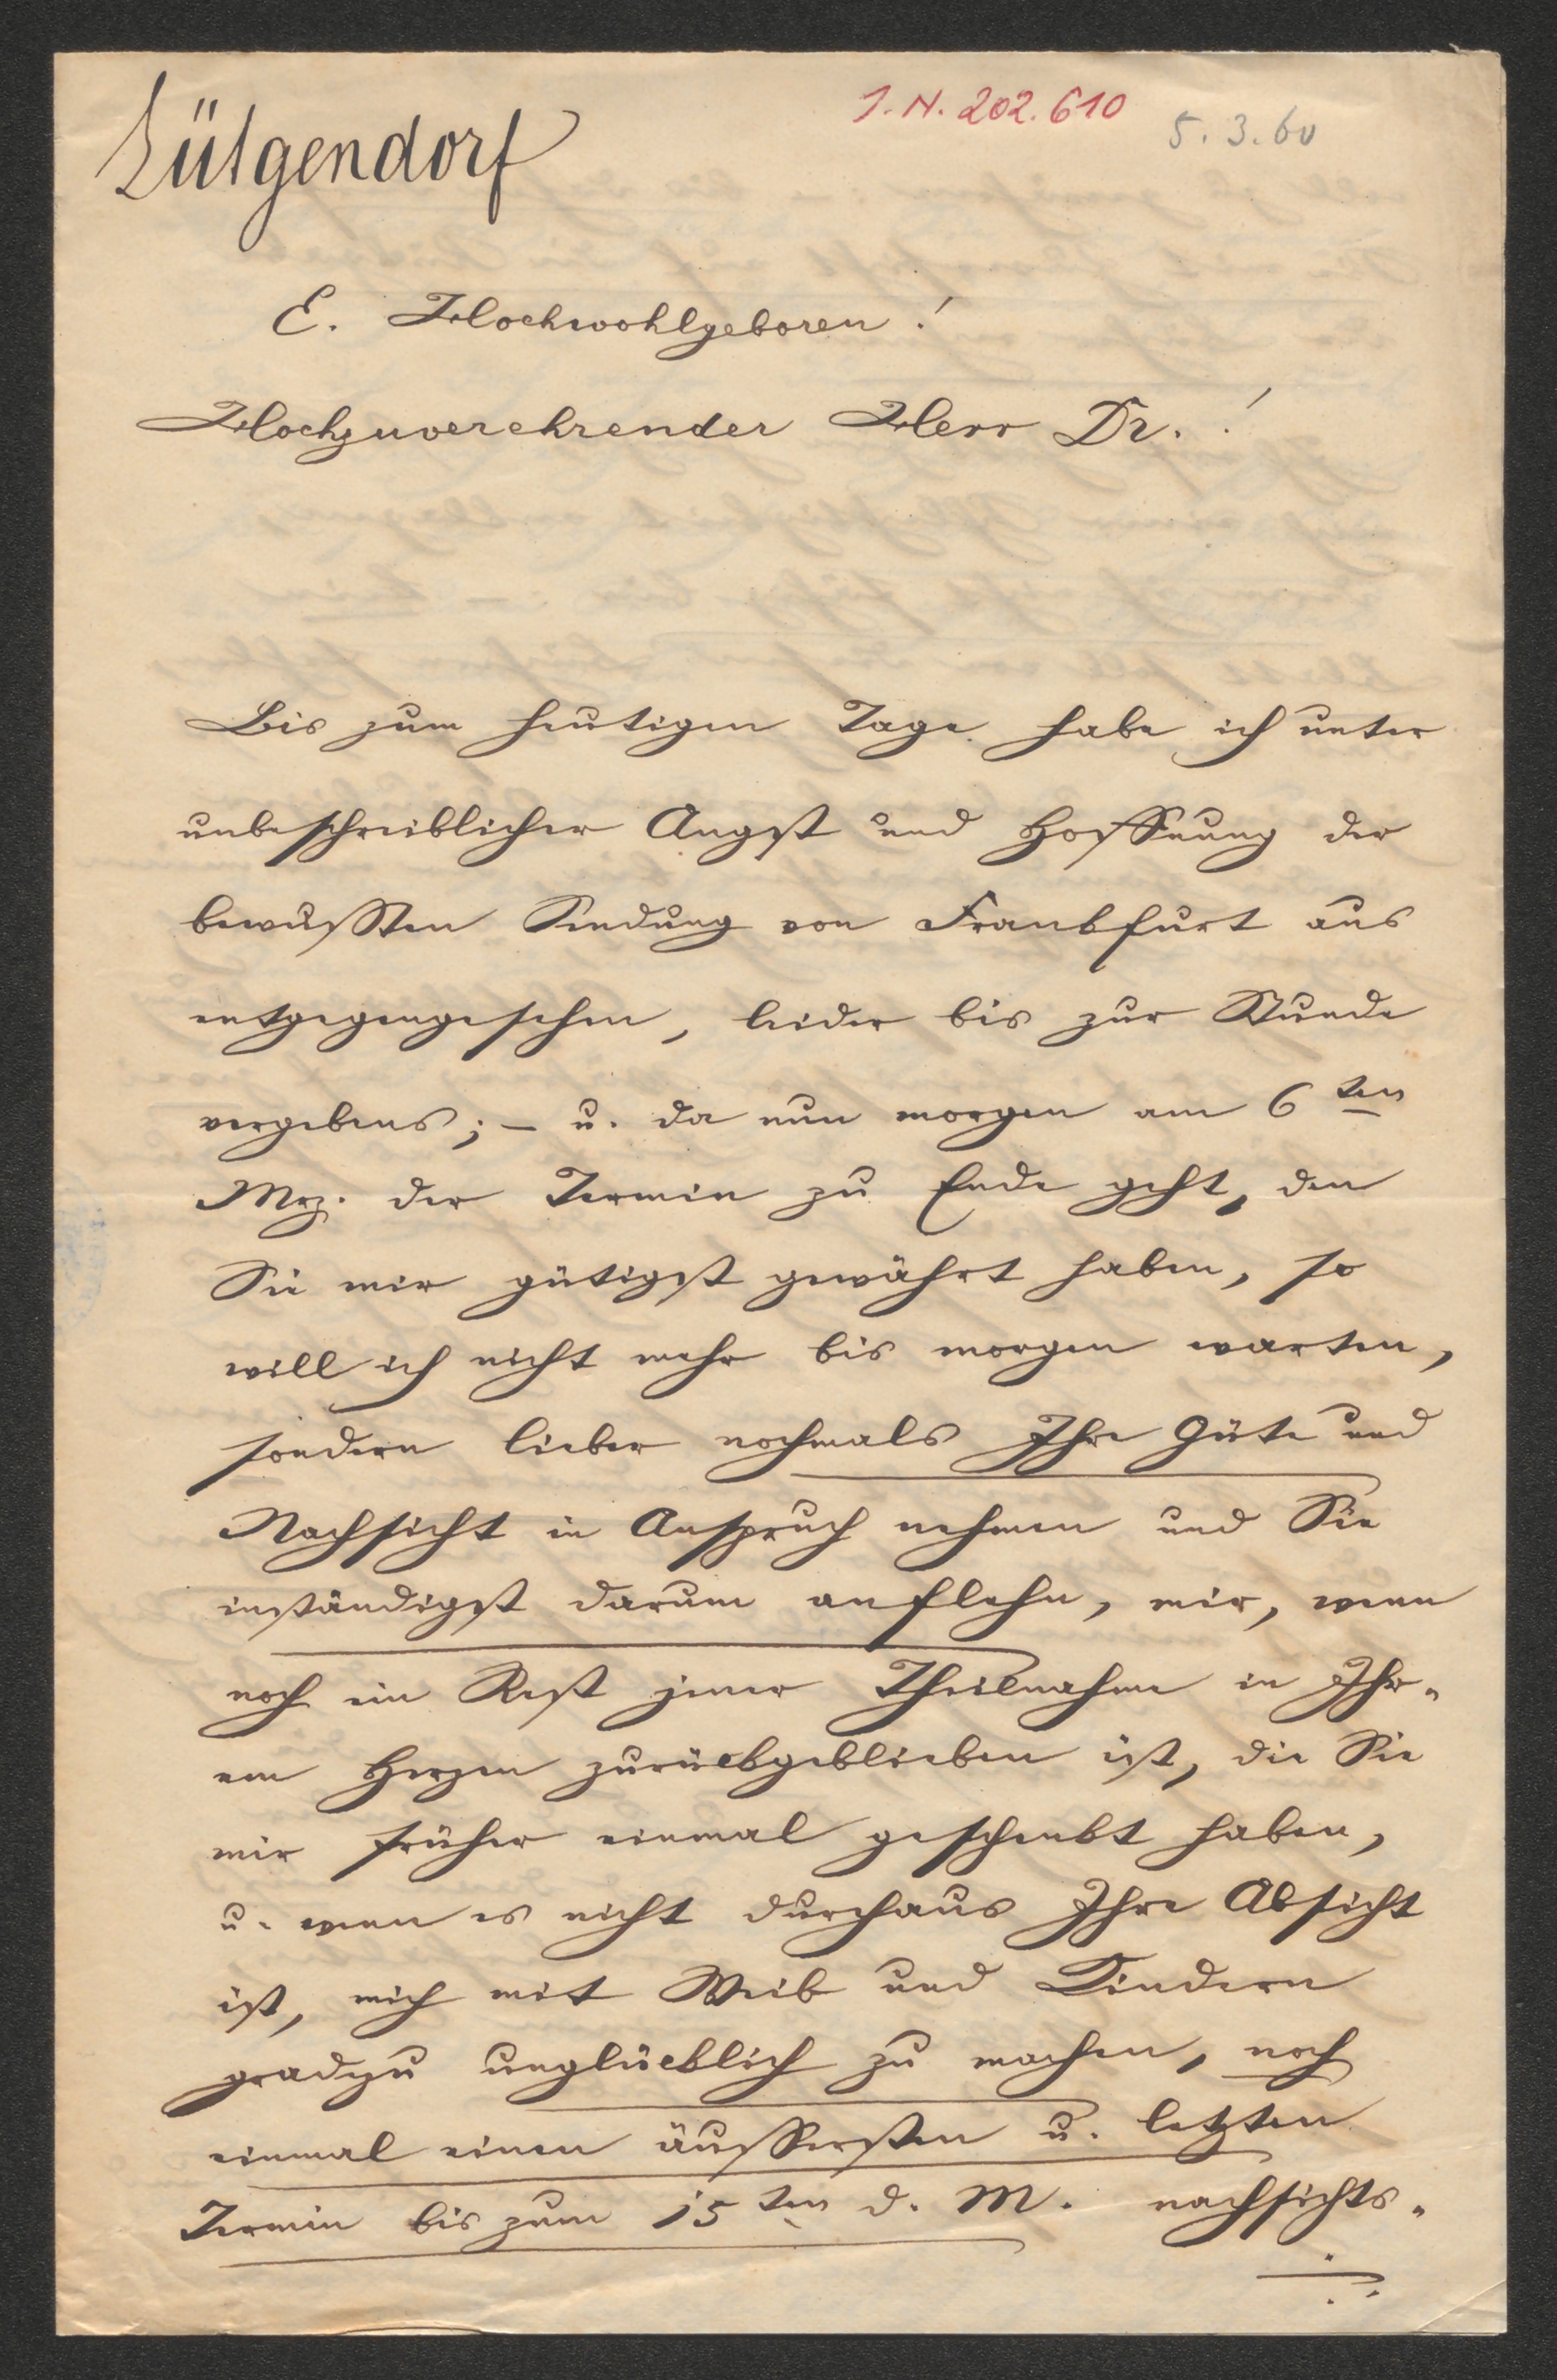 Lütgendorf
I.N. 202.610
5.3.60
E. Hochwohlgeboren!
Hochzuverehrender Herr Dr.!
Bis zum heutigen Tage habe ich unter
unbeschreiblicher Angst und Hoffnung der
bewußten Sendung von Frankfurt aus
entgegengesehen, leider bis zur Stunde
vergebens; – u. da nun morgen am 6ten
Mrz. der Termin zu Ende geht, den
Sie mir gütigst gewährt haben, so
will ich nicht mehr bis morgen warten,
sondern lieber nochmals Ihre Güte und
Nachsicht in Anspruch nehmen und Sie
inständigst darum anflehn, mir, wenn
noch ein Rest jener Theilnahme in Ihr-
em Herzen zurückgeblieben ist, die Sie
mir früher einmal geschenkt haben,
u. wenn es nicht durchaus Ihre Absicht
ist, mich mit Weib und Kindern
gradzu unglücklich zu machen, noch
einmal einen äußersten u. letzten
Termin bis zum 15ten d. M. nachsichts-